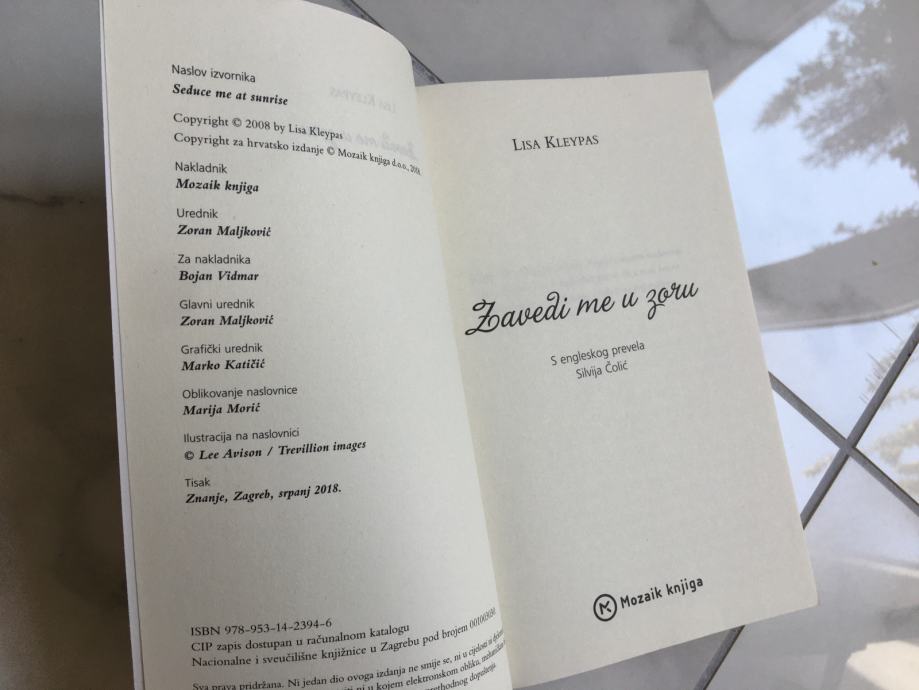 Naslov izvornika
Seduce me at sunrise
Copyright © 2008 by Lisa Kleypas
Copyright za hrvatsko izdanje © Mozaik knjiga d.o.o., 2018.
Nakladnik
Mozaik knjiga
Urednik
Zoran Maljković
Za nakladnika
Bojan Vidmar
Glavni urednik
Zoran Maljković
Grafički urednik
Marko Katičić
Oblikovanje naslovnice
Marija Morić
Ilustracija na naslovnici
© Lee Avison / Trevillion images
Tisak
Znanje, Zagreb, srpanj 2018.
ISBN 978-953-14-2394-6
CIP zapis dostupan u računalnom katalogu
Nacionalne i sveučilišne knjižnice u Zagrebu pod brojem
Sva prava pridržana. Ni jedan dio ovoga izdanja ne smije se, ni u cijelosti ni
ni u kojem elektronskom obliku,
prethodnog dopuštenja.
LISA KLEYPAS
Zavedi me u zoru
S engleskog prevela
Silvija Čolić
Mozaik knjiga